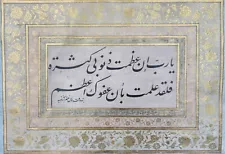 یا رب ان عظمت ذنوبی کثرة
فلقد علمت بأن عفوک اعظم